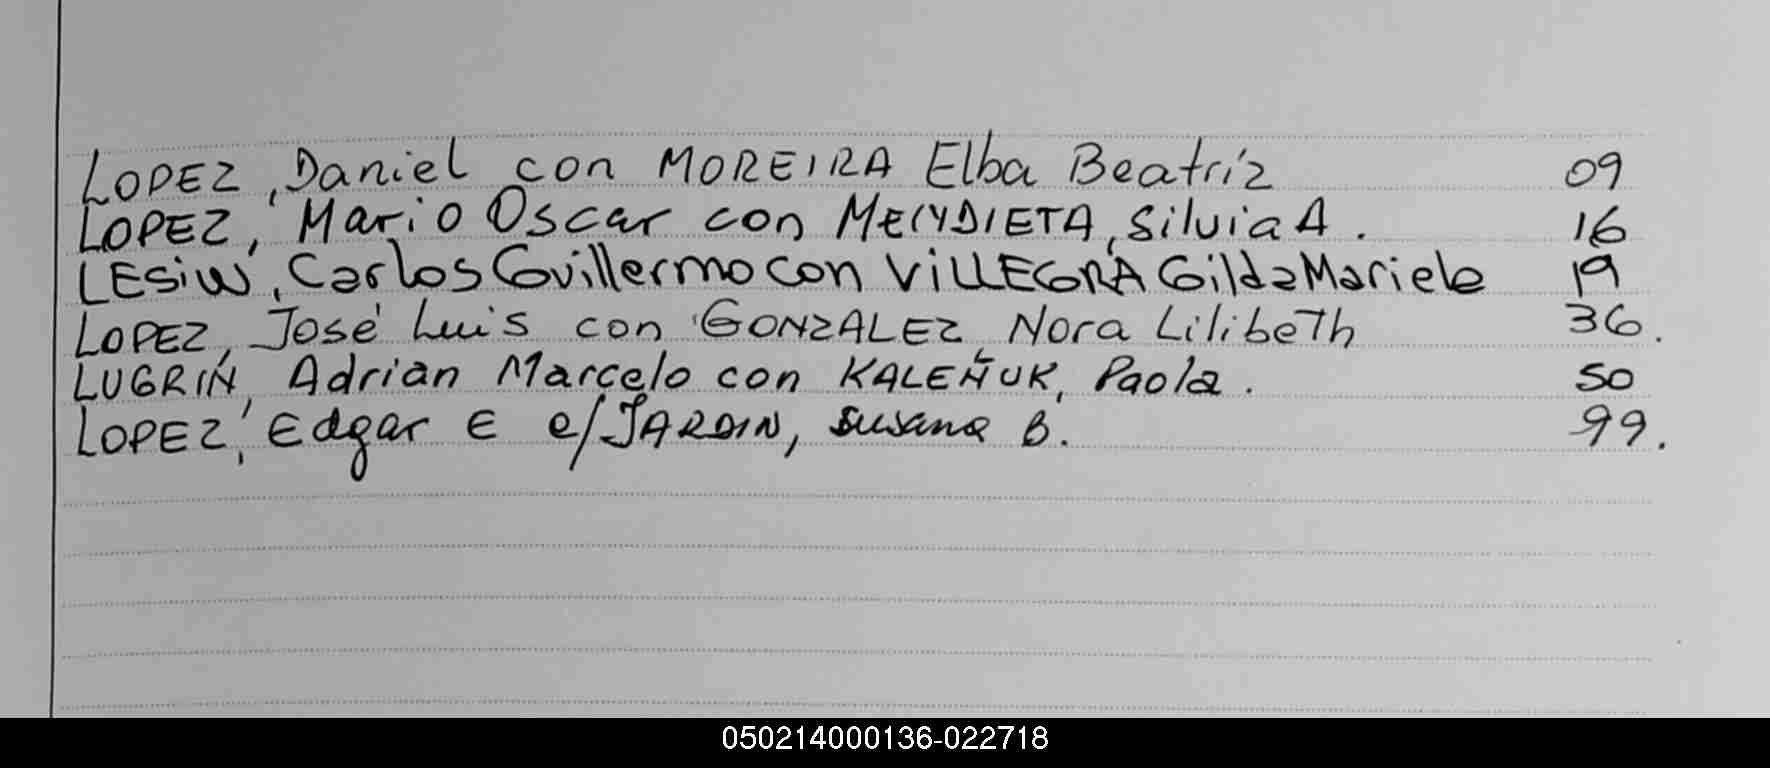 LOPEZ, Daniel con MOREIRA Elba Beatríz 09
LOPEZ, Mario Oscar con MENDIETA, Silvia A. 16
LESiW, Carlos Guillermo con ViLLEGRA Gilda Mariela 19
LOPEZ, José Luis con GONZALEZ Nora Lilibeth 36.
LUGRIN, Adrian Marcelo con KALEÑUK, Paola. 50
LOPEZ, Edgar E c/ JARDIN, Susana B. 99.
050214000136-022718